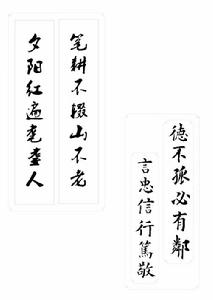 笔耕不辍山不老
夕阳红遍耄耋人
德不孤必有鄰
言忠信行篤敬